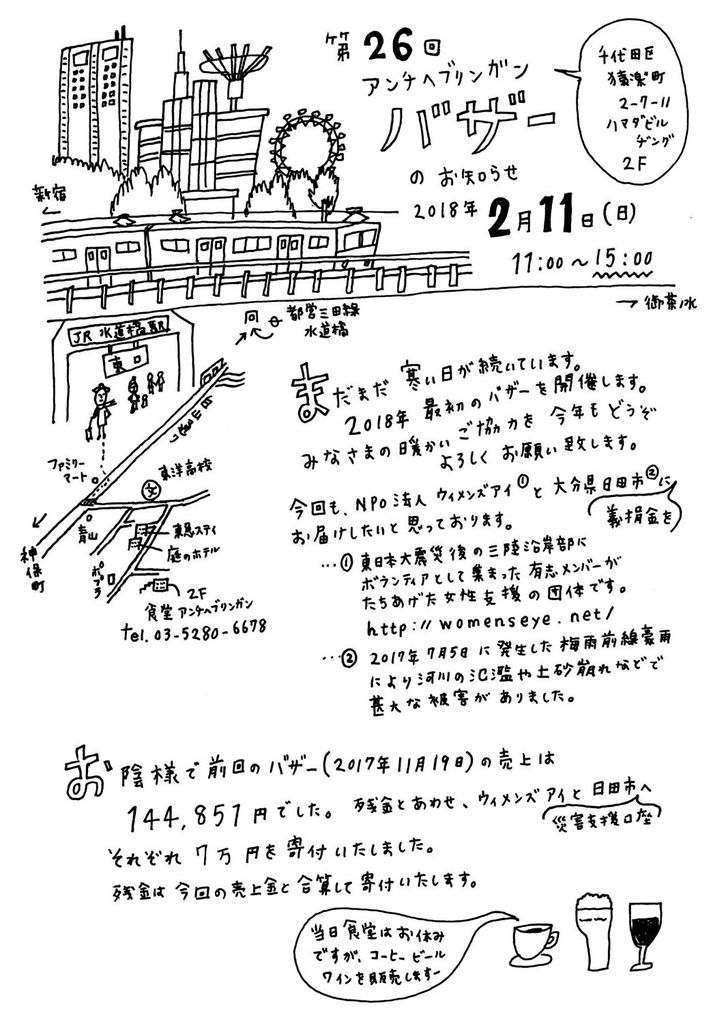 第26回
アンチヘブリンガン
バザー
のお知らせ
2018年2月11日(日)
11:00〜15:00
千代田区
猿楽町
2-7-11
ハマダビル
ヂング
2F
新宿
←
→御茶ノ水
都営三田線
水道橋
JR水道橋駅
東口
白山通り
ファミリー
マート
東洋高校
文
神保町
青山
東急ステイ
庭のホテル
ポプラ
2F
食堂アンチヘブリンガン
tel.03-5280-6678
まだまだ寒い日が続いています。
2018年最初のバザーを開催します。
みなさまの暖かいご協力を今年もどうぞ
よろしくお願い致します。
今回も、NPO法人ウィメンズアイ①と大分県日田市②に
義捐金を
お届けしたいと思っております。
…①東日本大震災後の三陸沿岸部に
ボランティアとして集まった有志メンバーが
たちあげた女性支援の団体です。
http://womenseye.net/
…②2017年7月5日に発生した梅雨前線豪雨
により河川の氾濫や土砂崩れなどで
甚大な被害がありました。
お陰様で前回のバザー(2017年11月19日)の売上は
144,857円でした。残金とあわせ、ウィメンズアイと日田市へ
災害支援口座
それぞれ7万円を寄付いたしました。
残金は今回の売上金と合算して寄付いたします。
当日食堂はお休み
ですが、コーヒービール
ワインを販売しますー